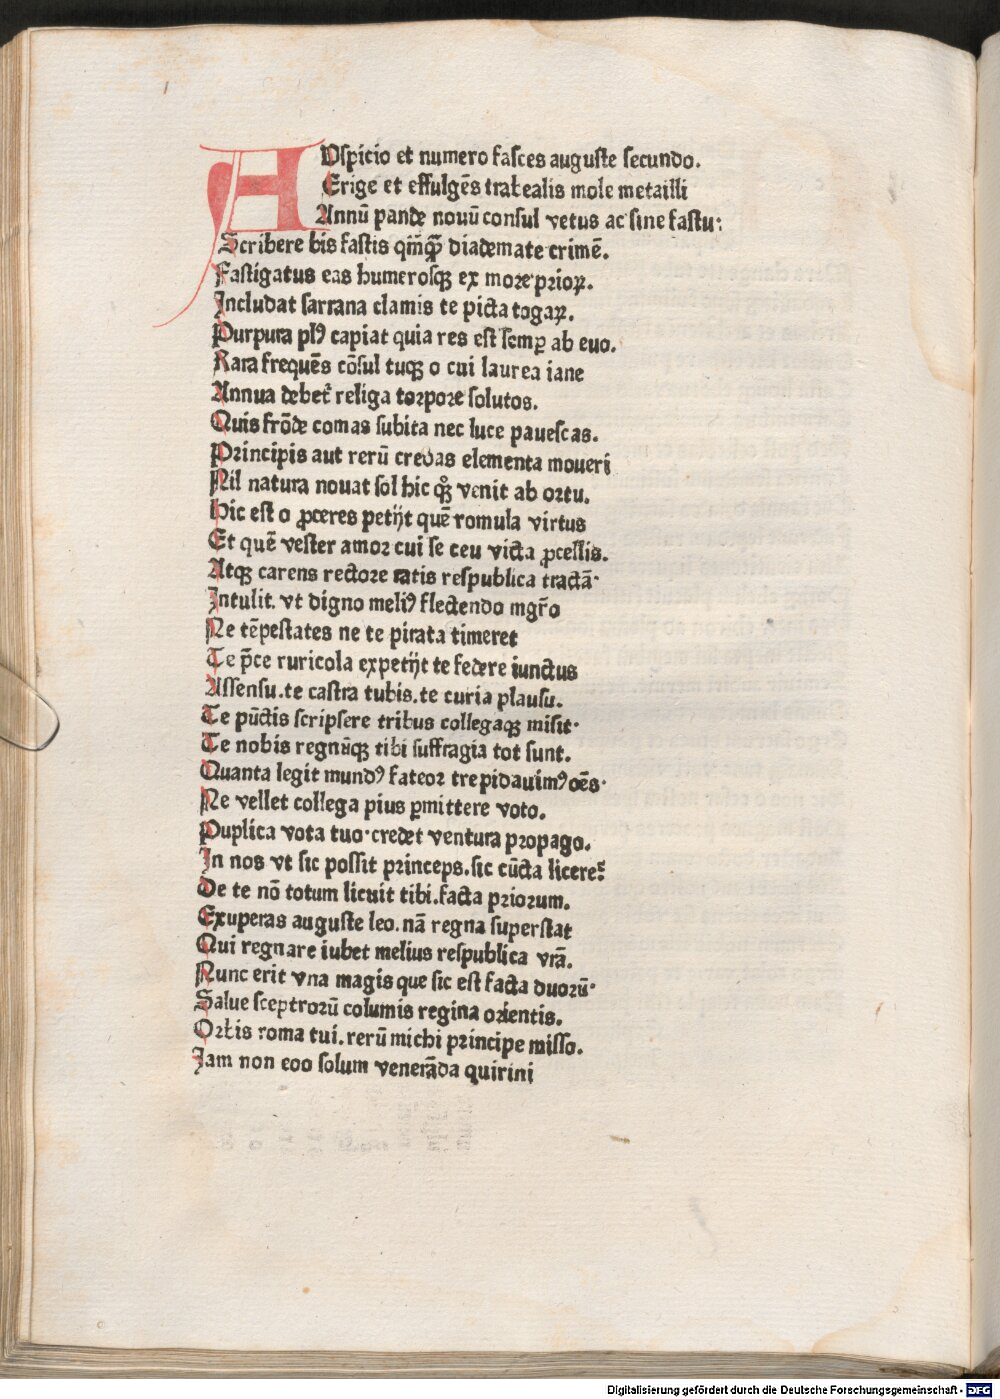 AUspicio et numero fasces auguste secundo.
Erige et effulgēs trabealis mole metailli
Annū pande nouū consul vetus ac sine fastu:
Scribere bis fastis qm̄qꝫ diademate crimē.
Fastigatus eas humerosqꝫ ex more prioꝝ.
Includat sarrana clamis te picta togaꝝ.
Purpura plꝰ capiat quia res est semꝑ ab euo.
Rara frequēs cōsul tuqꝫ o cui laurea iane
Annua debet᷑ religa torpore solutos.
Quis frōde comas subita nec luce pauescas.
Principis aut rerū credas elementa moueri
Nil natura nouat sol hic qꝫ venit ab ortu.
Hic est o ꝓceres petijt quē romula virtus
Et quē vester amor cui se ceu victa ꝓcellis.
Atqꝫ carens rectore ratis respublica tractā·
Intulit. vt digno meliꝰ flectendo mgr̄o
Ne tēpestates ne te pirata timeret
Te p̄ce ruricola expetijt te federe iunctus
Assensu. te castra tubis. te curia plausu.
Te pūctis scripsere tribus collegaqꝫ misit·
Te nobis regnūqꝫ tibi suffragia tot sunt.
Quanta legit mundꝰ fateor trepidauimꝰ oēs·
Ne vellet collega pius ꝑmittere voto.
Puplica vota tuo· credet ventura propago.
In nos vt sic possit princeps. sic cūcta liceret᷑
De te nō totum licuit tibi. facta priorum.
Exuperas auguste leo. nā regna superstat
Qui regnare iubet melius respublica vrā.
Nunc erit vna magis que sic est facta duorū·
Salue sceptrorū columis regina orientis.
Orbis roma tui. rerū michi principe misso.
Jam non eoo solum venerāda quirini
Digitalisierung gefördert durch die Deutsche Forschungsgemeinschaft - DFG